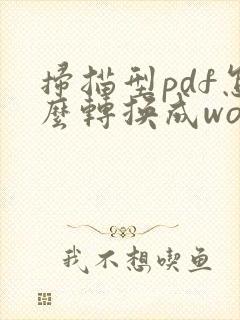 掃描型pdf怎
麼轉換成wo
我不想喫鱼